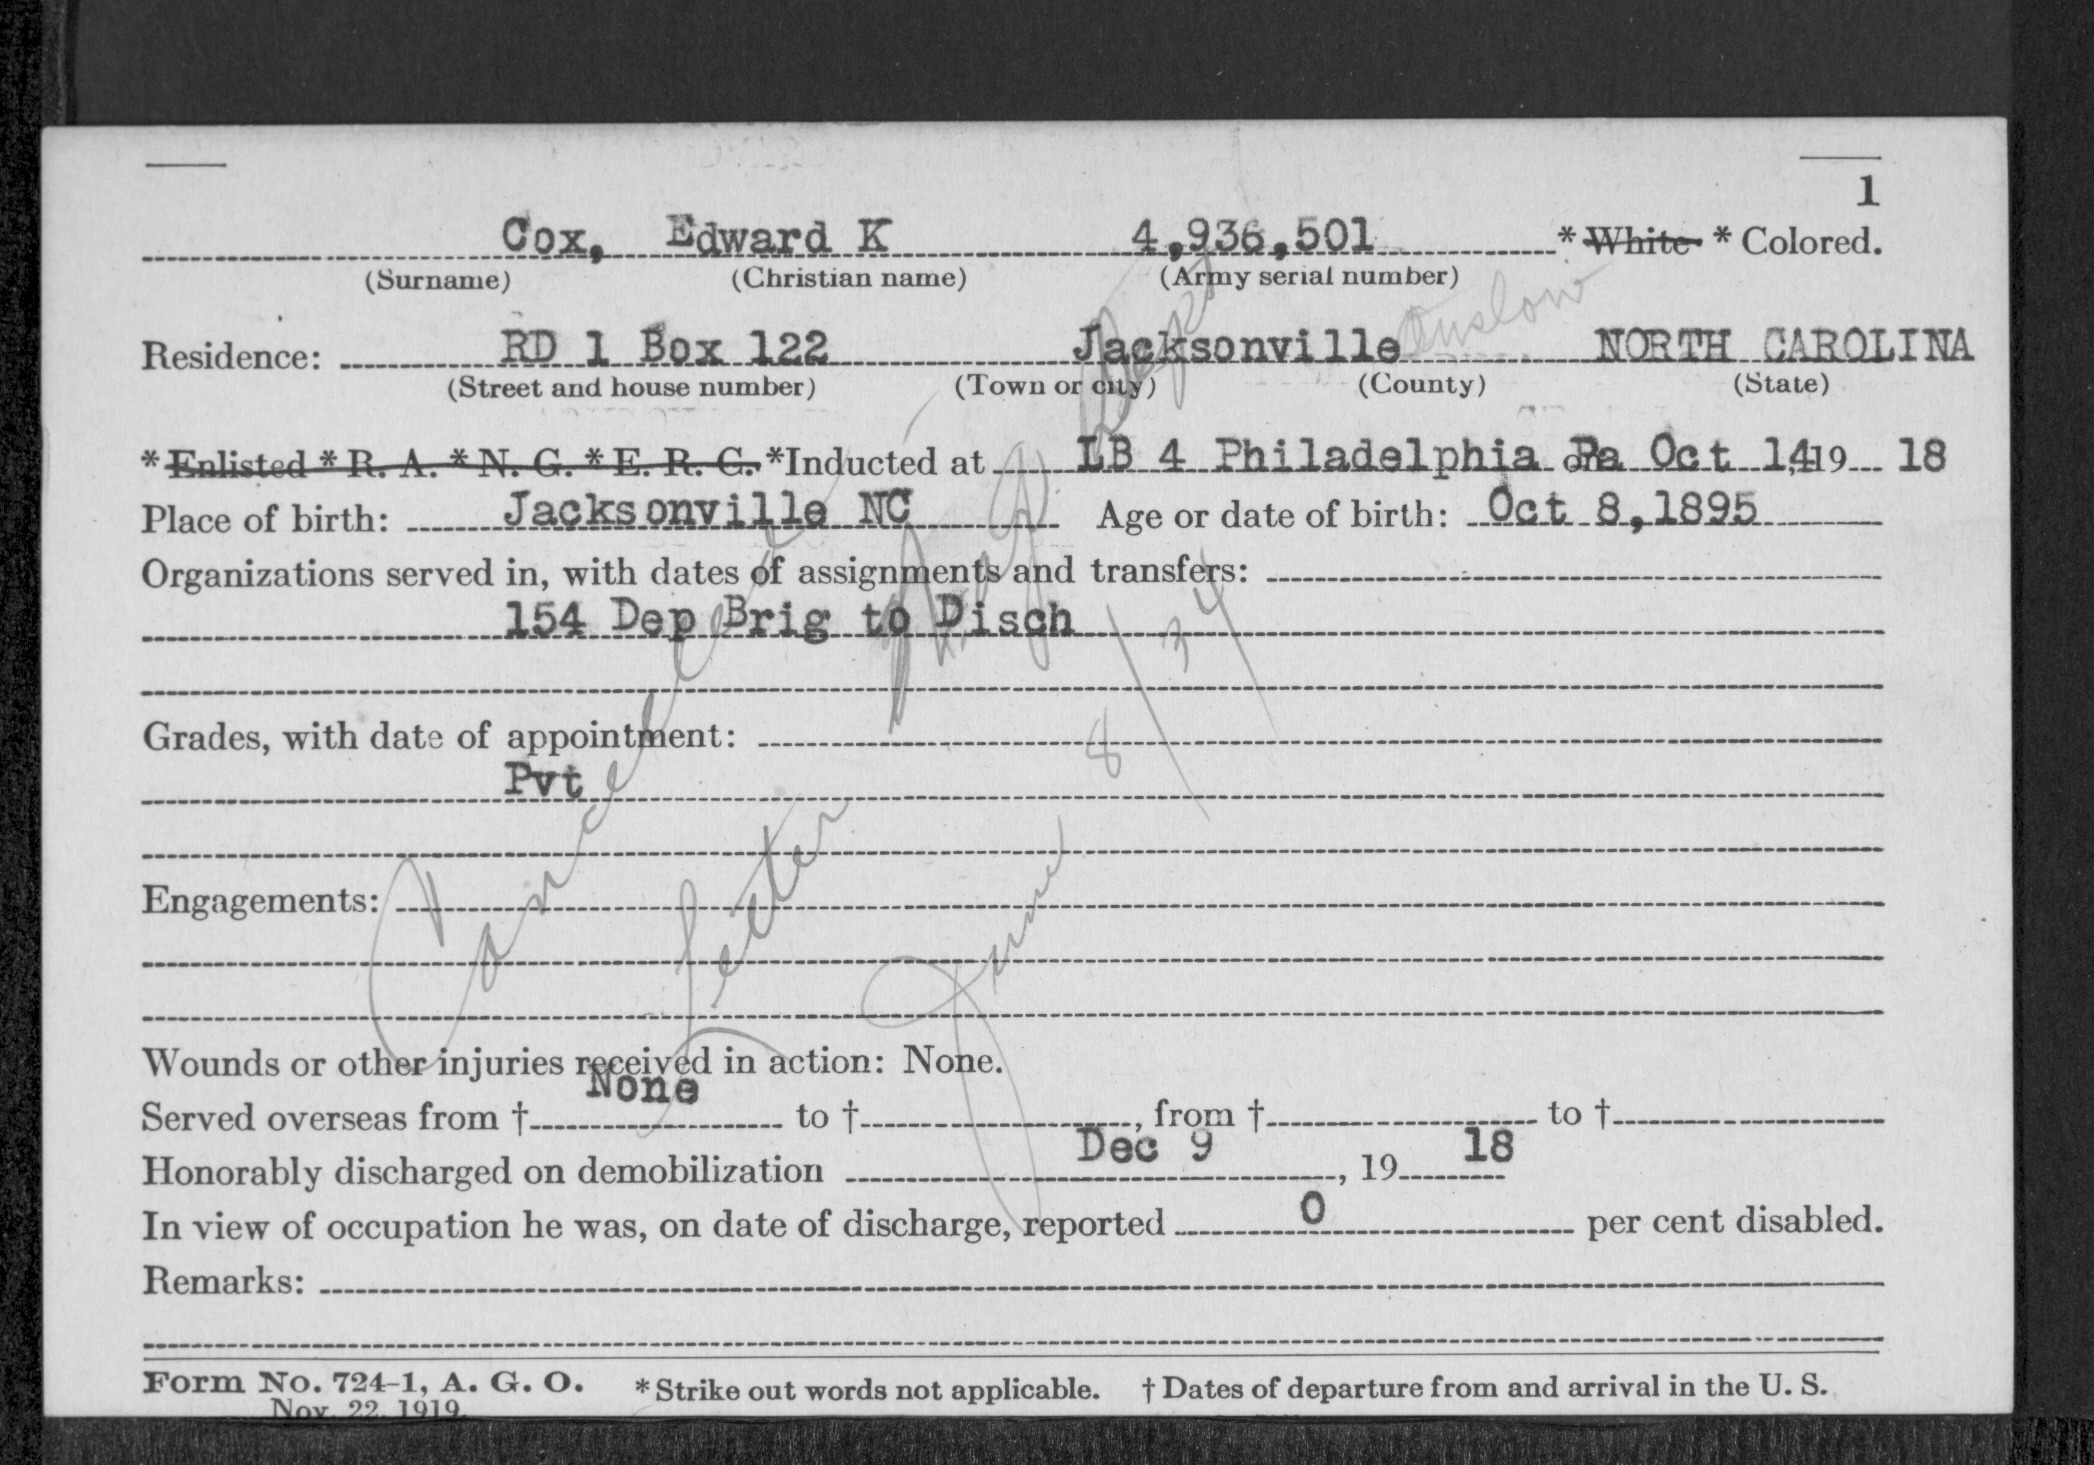 1
Cox, Edward K 4,936,501 * White * Colored.
(Surname) (Christian name) (Army serial number)
Onslow
Residence: RD 1 Box 122 Jacksonville NORTH CAROLINA
(Street and house number) (Town or city) (County) (State)
* Enlisted * R. A. * N. G. * E. R. C. *Inducted at LB 4 Philadelphia Pa on Oct 14, 19 18
Place of birth: Jacksonville NC Age or date of birth: Oct 8, 1895
Organizations served in, with dates of assignments and transfers:
154 Dep Brig to Disch
Grades, with date of appointment:
Pvt
Engagements:
Cancelled
Letter
8/34
Wounds or other injuries received in action: None.
Served overseas from † None to †, from † to †
Honorably discharged on demobilization Dec 9, 19 18
In view of occupation he was, on date of discharge, reported 0 per cent disabled.
Remarks:
Form No. 724-1, A. G. O. *Strike out words not applicable. † Dates of departure from and arrival in the U. S.
Nov. 22, 1919.